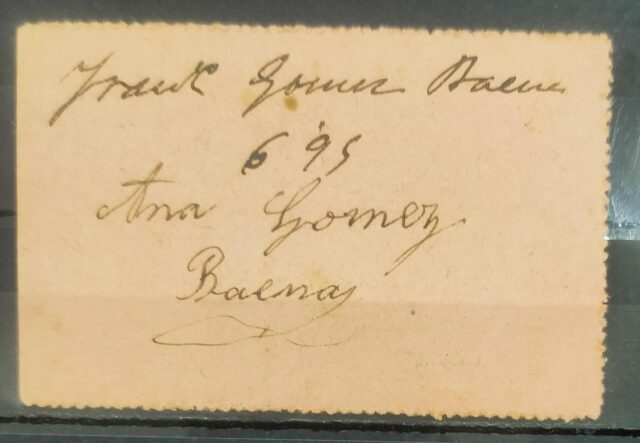 Gomez Baena
6'95
Ana Gomez
Baena